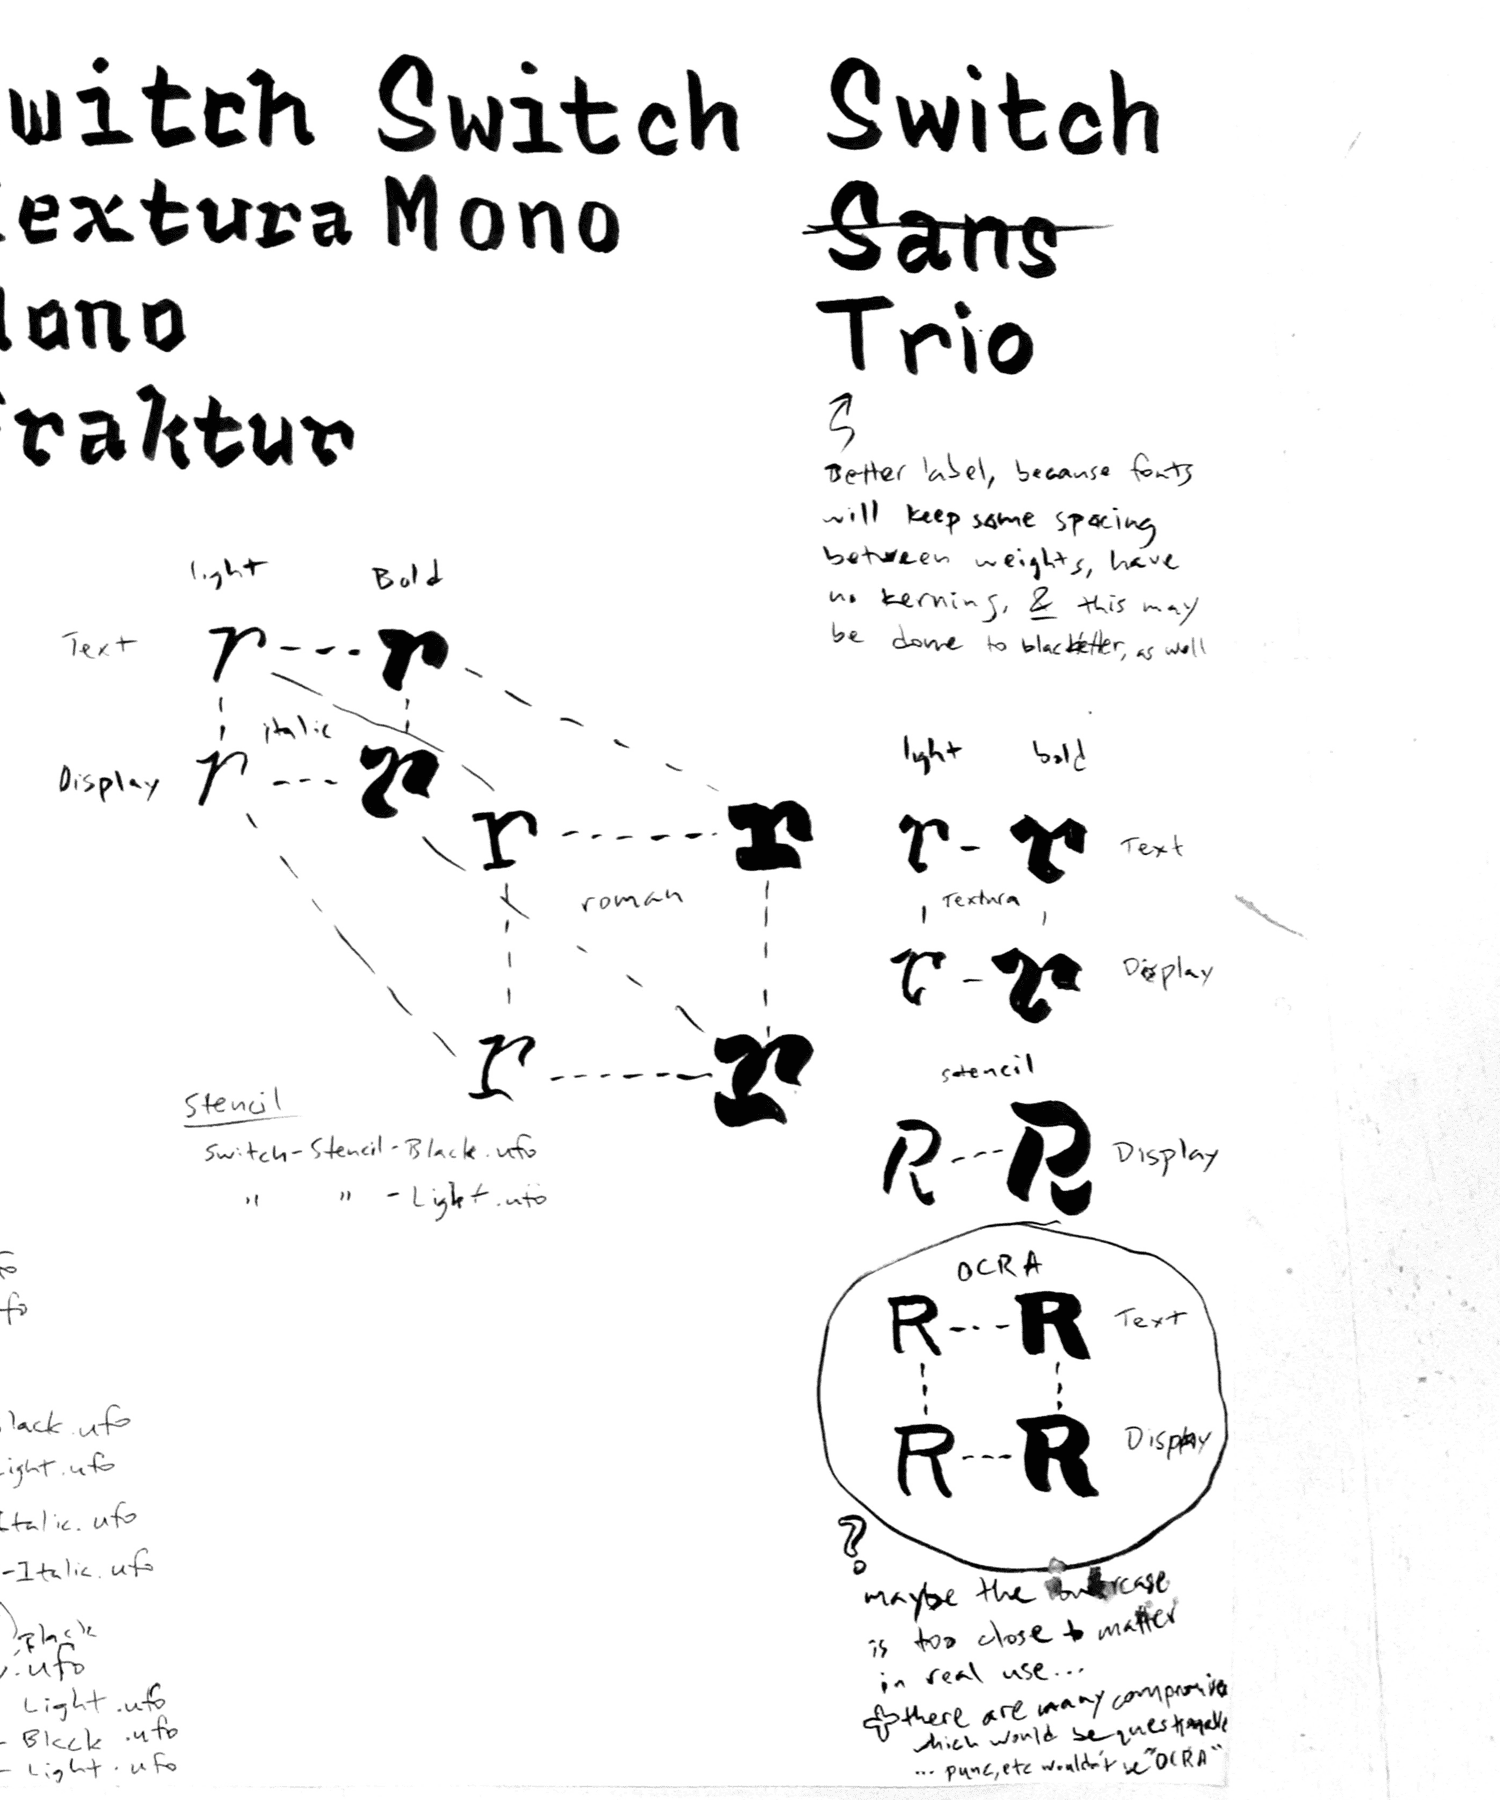 witch Switch Switch
extura Mono Sans
ono Trio
raktur
Better label, because fonts
will keep same spacing
between weights, have
no kerning, & this may
be done to blackletter, as well
light Bold
Text r r
italic
Display r r
r r
roman
r r
Stencil
Switch-Stencil-Black.ufo
" " -Light.ufo
light bold
r r Text
Textura
r r Display
stencil
R R Display
OCRA
R R Text
R R Display
?
maybe the lowercase
is too close to matter
in real use...
there are many compromises
which would be questionable
... punc, etc wouldn't be "OCRA"
fo
fo
lack.ufo
ight.ufo
Italic.ufo
-Italic.ufo
Black
.ufo
Light.ufo
- Black.ufo
- Light.ufo